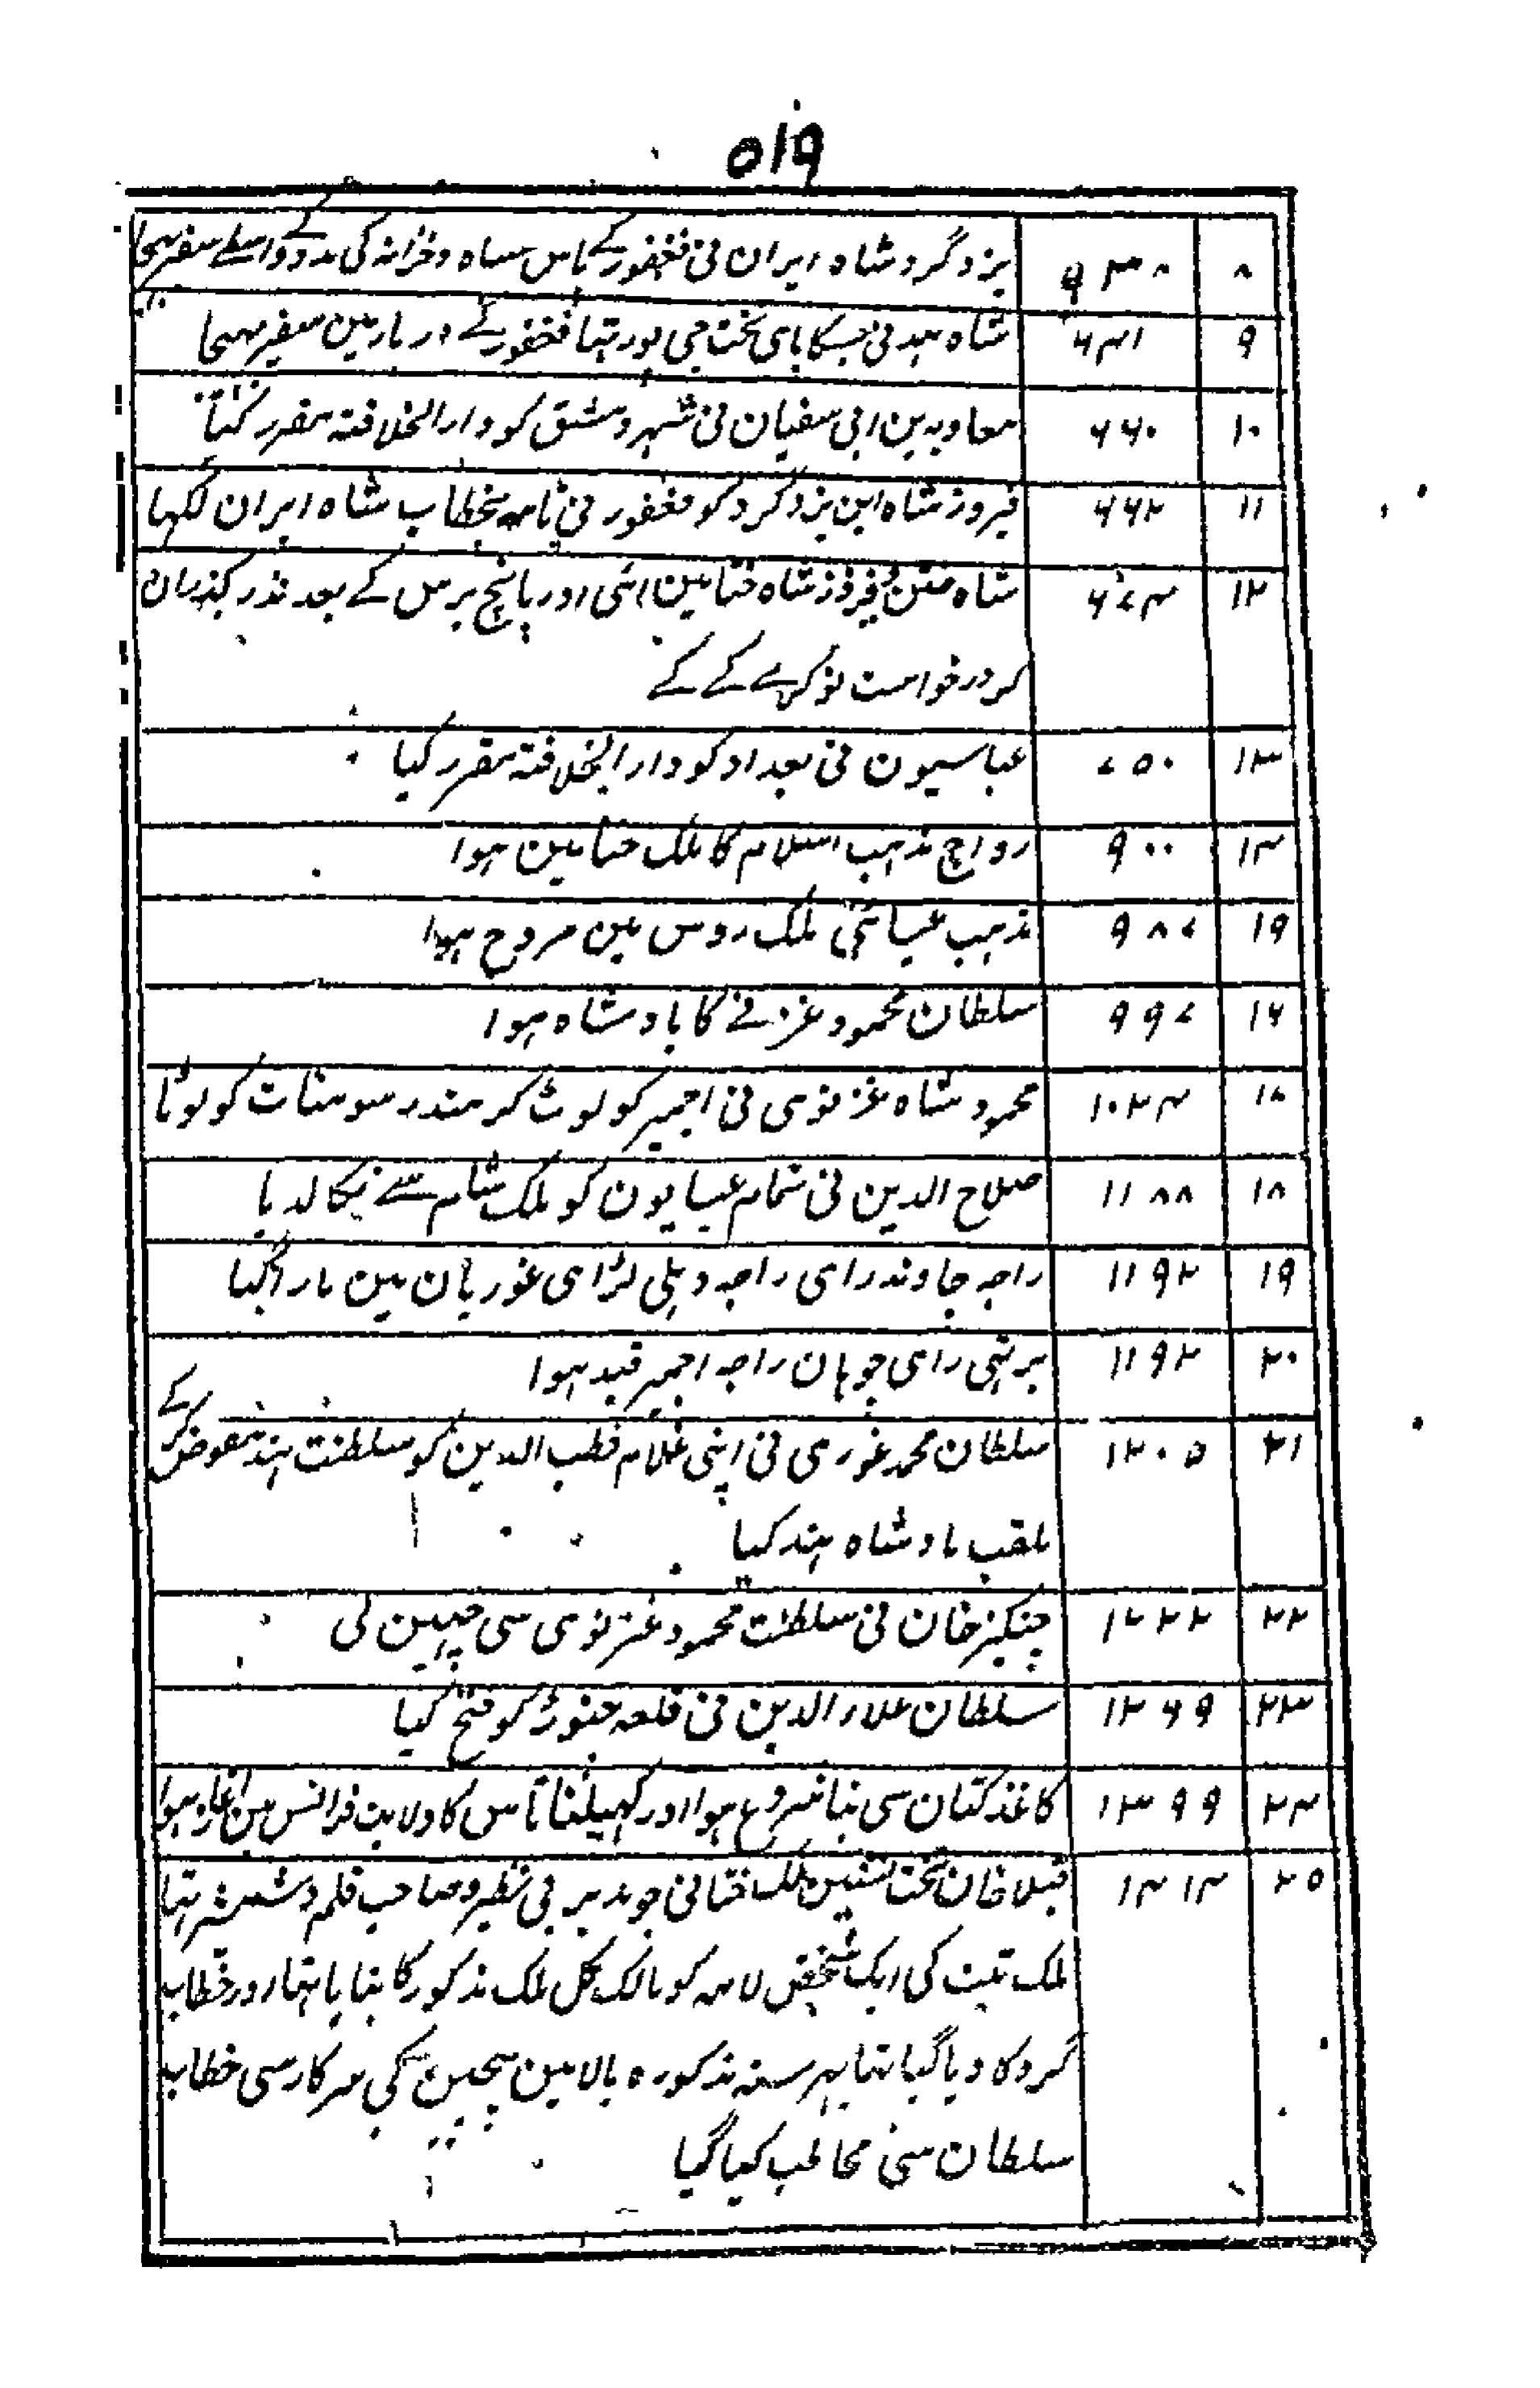 ۵۱۹
۸ ۶۳۸ یزدگرد شاہ ایران نی فغفور کے پاس سپاہ و خزانہ کی مدد کے واسطے سفیر بہیجا
۹ ۶۴۱ شاہ ہند نی جسکا پای تخت جی پور تہا فغفور کے دربار مین سفیر بہیجا
۱۰ ۶۶۰ معاویہ بن ابی سفیان نی شہر دمشق کو دارالخلافتہ مقرر کیا
۱۱ ۶۶۲ فیروز شاہ ابن یزدگرد کو فغفور نی نامہ بخطاب شاہ ایران لکہا
۱۲ ۶۷۴ شاہ فیروز شاہ ختا مین آئی اور پانچ برس کے بعد نذر گذران
کر درخواست نوکری کے کے
۱۳ ۷۵۰ عباسیون نی بغداد کو دارالخلافتہ مقرر کیا
۱۴ ۹۰۰ رواج مذہب اسلام کا ملک ختا مین ہوا
۱۹ ۹۸۷ مذہب عیسائی ملک روس مین مروج ہوا
۱۶ ۹۹۷ سلطان محمود غزنے کا بادشاہ ہوا
۱۷ ۱۰۲۴ محمود شاہ غزنوی نی اجمیر کو لوٹ کر مندر سومنات کو لوٹا
۱۸ ۱۱۸۸ صلاح الدین نی تمام عیسایون کو ملک شام سے نکالدیا
۱۹ ۱۱۹۲ راجہ جاوندرای راجہ دہلی لڑای غوریان مین مارا گیا
۲۰ ۱۱۹۲ پرتہی رای چوہان راجہ اجمیر قید ہوا
۲۱ ۱۲۰۵ سلطان محمد غوری نی اپنی غلام قطب الدین کو سلطنت ہند مفوض کر کے
ملقب بادشاہ ہند کیا
۲۲ ۱۲۲۲ چنگیز خان نی سلطنت محمود غزنوی سی چہین لی
۲۳ ۱۲۶۹ سلطان علاءالدین نی قلعہ چتوڑ کو فتح کیا
۲۴ ۱۳۹۹ کاغذ کتان سی بننا شروع ہوا اور کہیلنا تاس کا ولایت فرانس مین آغاز ہوا
۲۵ ۱۴۱۴ قبلا خان تخت نشین ملک ختا نی جو مدبر بی نظیر و صاحب قلم و شمشیر تہا
ملک تبت کی ایک شخص لامہ کو مالک کل ملک مذکور کا بنایا تہا اور خطاب
گرو کا دیا گیا تہا پہر سنہ مذکورہ بالا مین چین کی سرکار سی خطاب
سلطان سی مخاطب کیا گیا